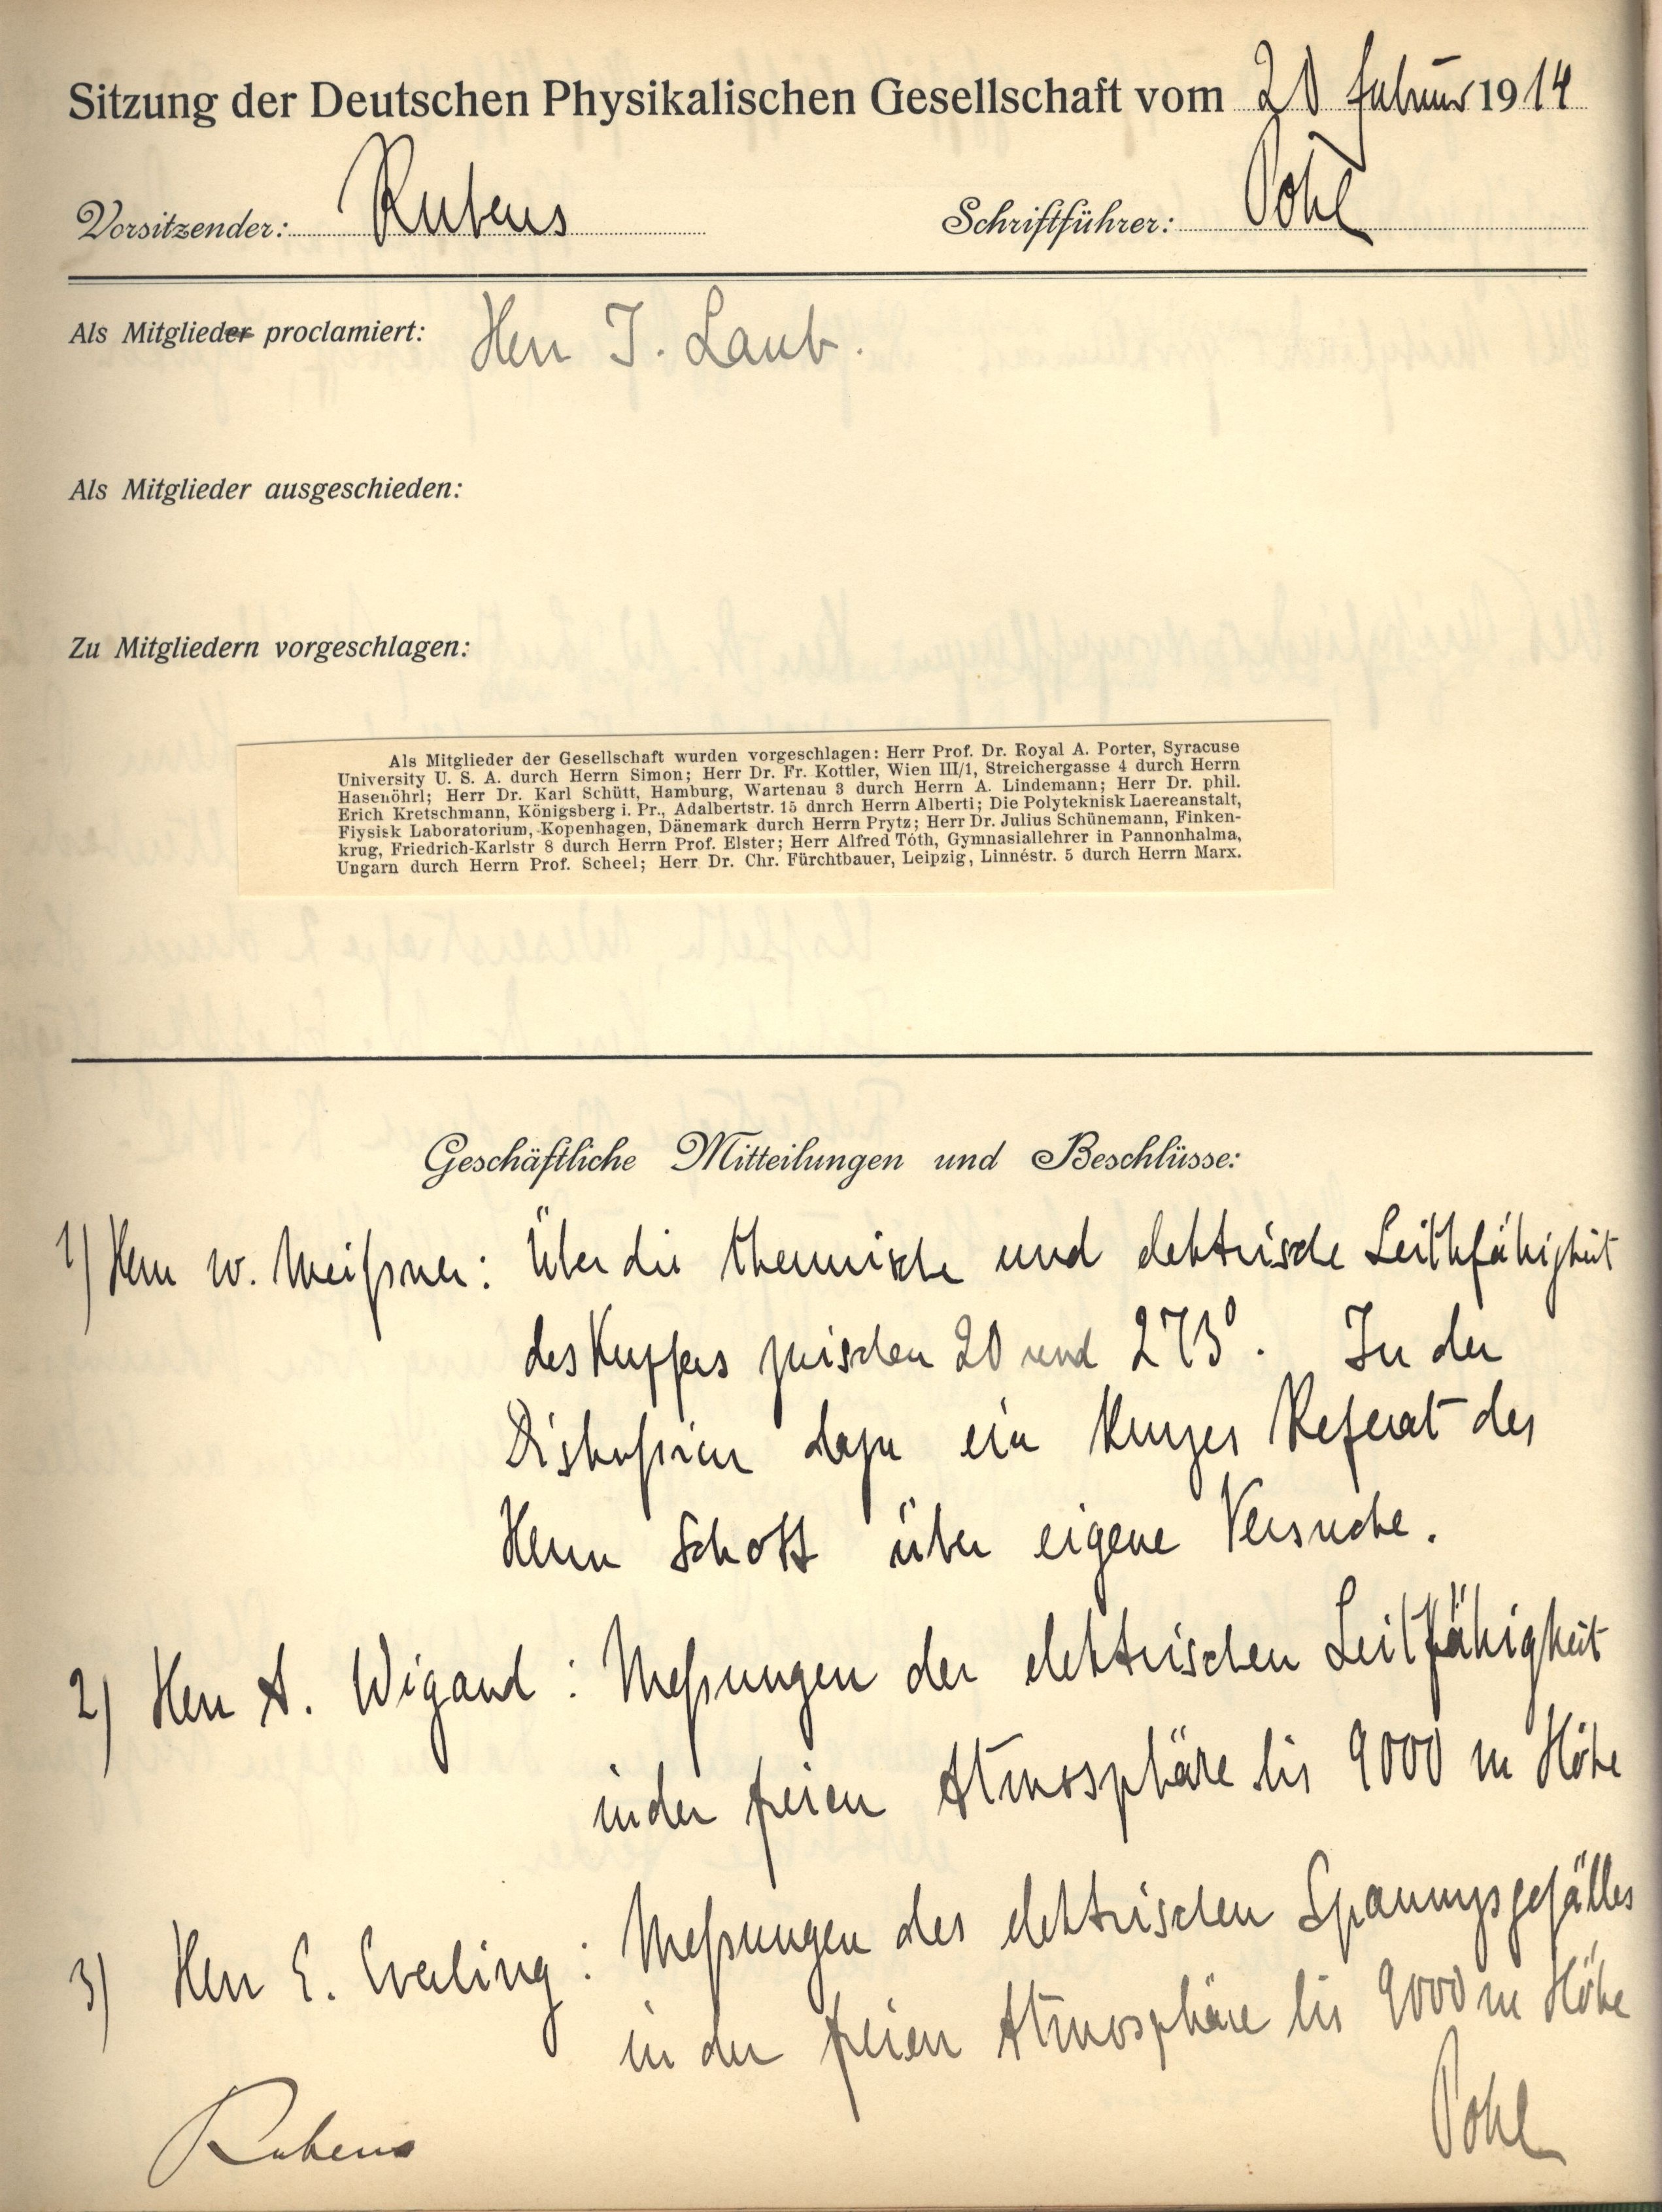 Sitzung der Deutschen Physikalischen Gesellschaft vom 20 Februar 1914
Vorsitzender: Rubens Schriftführer: Pohl
Als Mitglieder proclamiert: Herr J. Laub.
Als Mitglieder ausgeschieden:
Zu Mitgliedern vorgeschlagen:
Als Mitglieder der Gesellschaft wurden vorgeschlagen: Herr Prof. Dr. Royal A. Porter, Syracuse
University U. S. A. durch Herrn Simon; Herr Dr. Fr. Kottler, Wien III/1, Streichergasse 4 durch Herrn
Hasenöhrl; Herr Dr. Karl Schütt, Hamburg, Wartenau 3 durch Herrn A. Lindemann; Herr Dr. phil.
Erich Kretschmann, Königsberg i. Pr., Adalbertstr. 15 dnrch Herrn Alberti; Die Polyteknisk Laereanstalt,
Fiysisk Laboratorium, Kopenhagen, Dänemark durch Herrn Prytz; Herr Dr. Julius Schünemann, Finken-
krug, Friedrich-Karlstr 8 durch Herrn Prof. Elster; Herr Alfred Tóth, Gymnasiallehrer in Pannonhalma,
Ungarn durch Herrn Prof. Scheel; Herr Dr. Chr. Fürchtbauer, Leipzig, Linnéstr. 5 durch Herrn Marx.
Geschäftliche Mitteilungen und Beschlüsse:
1) Herr W. Meißner: Über die thermische und elektrische Leithfähigkeit
des Kupfers zwischen 20 und 273°. In der
Diskußion dazu ein kurzes Referat des
Herrn Schott über eigene Versuche.
2) Herr A. Wigand: Meßungen der elektrischen Leitfähigkeit
in der freien Atmosphäre bis 9000 m Höhe
3) Herr E. Everling: Meßungen des elektrischen Spannungsgefälles
in der freien Atmosphäre bis 9000 m Höhe
Rubens Pohl